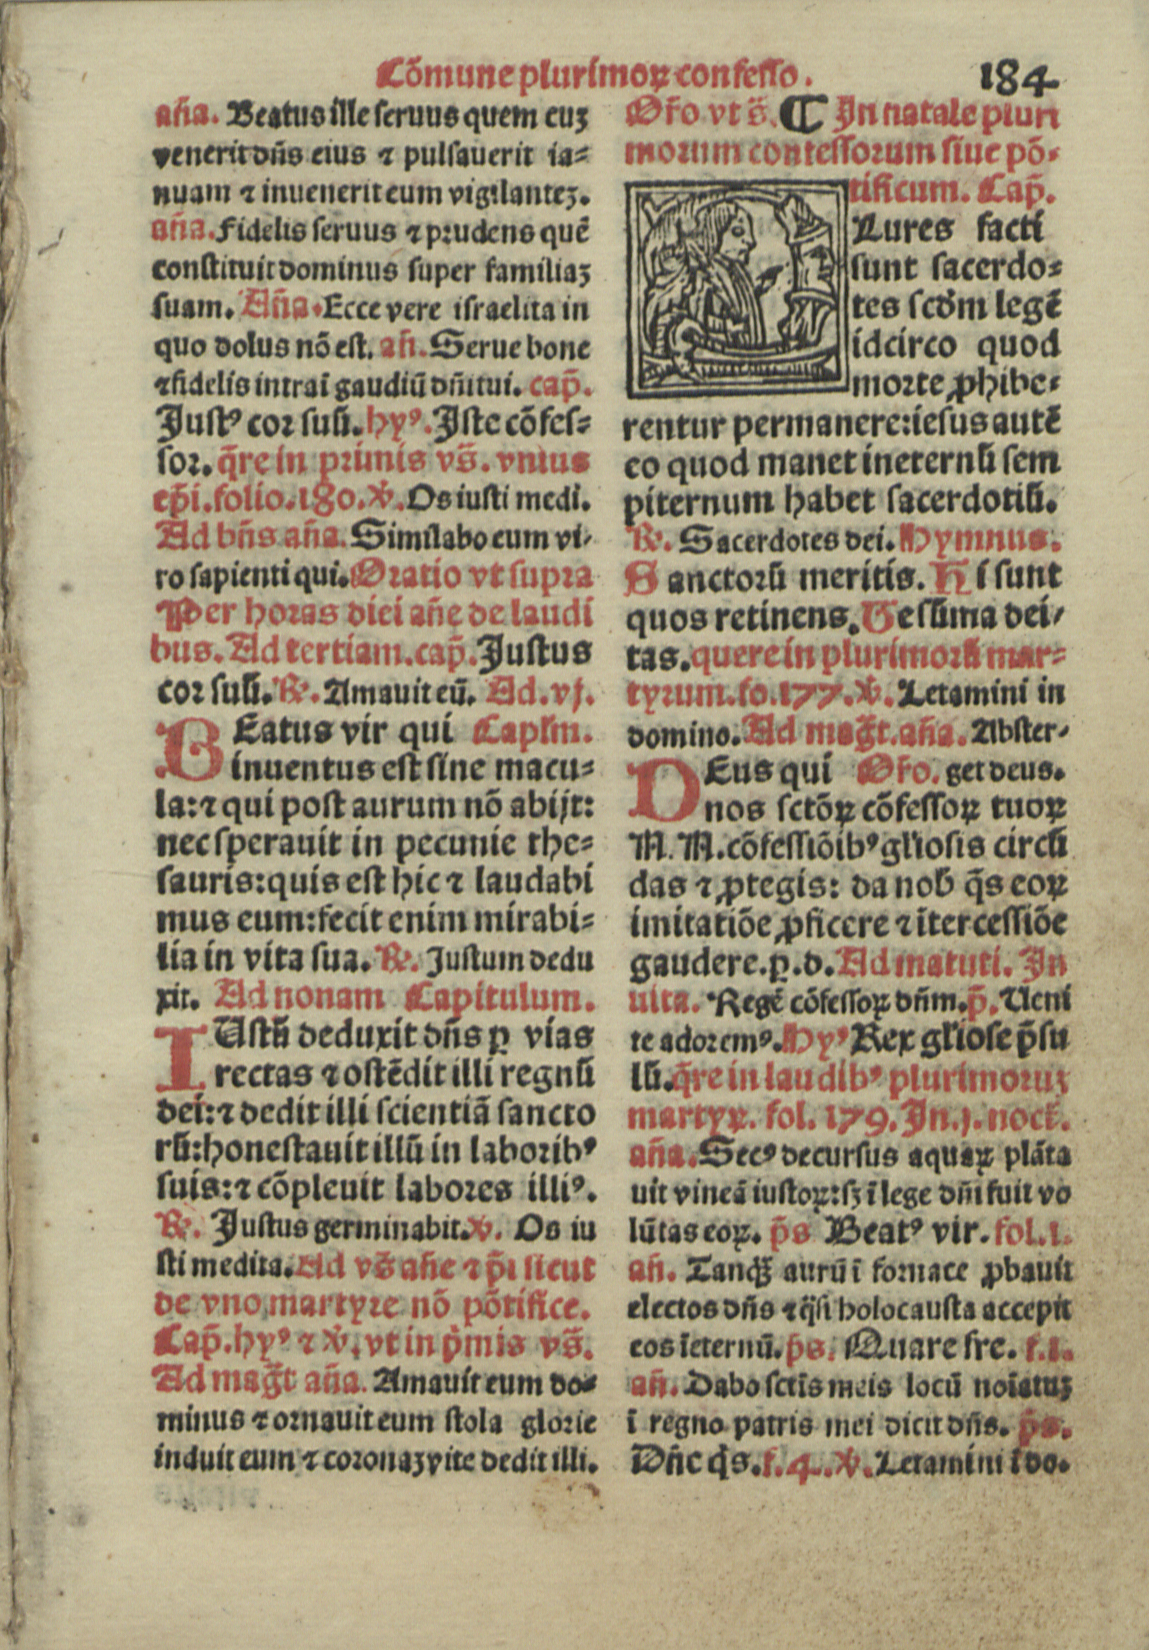 Cōmune plurimoꝝ confesso. 184
aña. Beatus ille seruus quem euꝫ
venerit dn̄s eius ⁊ pulsauerit ia-
nuam ⁊ inuenerit eum vigilanteꝫ.
aña. Fidelis seruus ⁊ prudens quē
constituit dominus super familiaꝫ
suam. Aña. Ecce vere israelita in
quo dolus nō est. añ. Serue bone
⁊ fidelis intra ī gaudiū dn̄i tui. cap̄.
Justꝰ cor suū. hyꝰ. Iste cōfes-
sor. q̄re in primis vs̄. vnius
ep̄i. folio. 180. ℣. Os iusti medi.
Ad bn̄s aña. Similabo eum vi-
ro sapienti qui. Oratio vt supra
Per horas diei añe de laudi
bus. Ad tertiam. cap̄. Justus
cor suū. ℟. Amauit eū. Ad. vj.
BEatus vir qui Caplm̄.
inuentus est sine macu-
la: ⁊ qui post aurum nō abijt:
nec sperauit in pecunie the-
sauris: quis est hic ⁊ laudabi
mus eum: fecit enim mirabi-
lia in vita sua. ℟. Justum dedu
xit. Ad nonam Capitulum.
IUstū deduxit dn̄s ꝑ vias
rectas ⁊ ostēdit illi regnū
dei: ⁊ dedit illi scientiā sancto
rū: honestauit illū in laboribꝰ
suis: ⁊ cōpleuit labores illiꝰ.
℟. Justus germinabit. ℣. Os iu
sti medita. Ad vs̄ añe ⁊ p̄i sicut
de vno martyre nō pōtifice.
Cap̄. hyꝰ ⁊ ℣. vt in p̄mis vs̄.
Ad maḡt aña. Amauit eum do-
minus ⁊ ornauit eum stola glorie
induit eum ⁊ coronaꝫ vite dedit illi.
Or̄o vt s̄. ¶ In natale pluri
morum confessorum siue pō-
tificum. Cap̄.
PLures facti
sunt sacerdo-
tes scd̄m legē
idcirco quod
morte ꝓhibe-
rentur permanere: iesus autē
eo quod manet in eternū sem
piternum habet sacerdotiū.
℟. Sacerdotes dei. Hymnus.
Sanctorū meritis. Hi sunt
quos retinens. Te sūma dei-
tas. quere in plurimorū mar-
tyrum. fo. 177. ℣. Letamini in
domino. Ad maḡt. aña. Abster-
DEus qui Or̄o. get deus.
nos sctōꝝ cōfessoꝝ tuoꝝ
N. N. cōfessiōibꝰ gl̄iosis circū
das ⁊ ꝓtegis: da nob̄ q̄s eoꝝ
imitatiōe ꝓficere ⁊ ītercessiōe
gaudere. ꝑ. d. Ad matuti. In
uita. Regē cōfessoꝝ dn̄m. p̄. Ueni
te adoremꝰ. Hyꝰ Rex gl̄iose p̄su
lū. q̄re in laudibꝰ plurimoruꝫ
martyꝝ. fol. 179. In. j. noct̄.
aña. Secꝰ decursus aquaꝝ plāta
uit vineā iustoꝝ: sꝫ ī lege dn̄i fuit vo
lūtas eoꝝ. p̄s Beatꝰ vir. fol. 1.
añ. Tanqꝫ̄ aurū ī fornace ꝓbauit
electos dn̄s ⁊ q̄si holocausta accepit
eos īeternū. p̄s. Quare fre. f. 1.
añ. Dabo sctīs meis locū noīatuꝫ
ī regno patris mei dicit dn̄s. p̄s.
Dn̄e q̄s. f. 4. ℣. Letamini ī do.